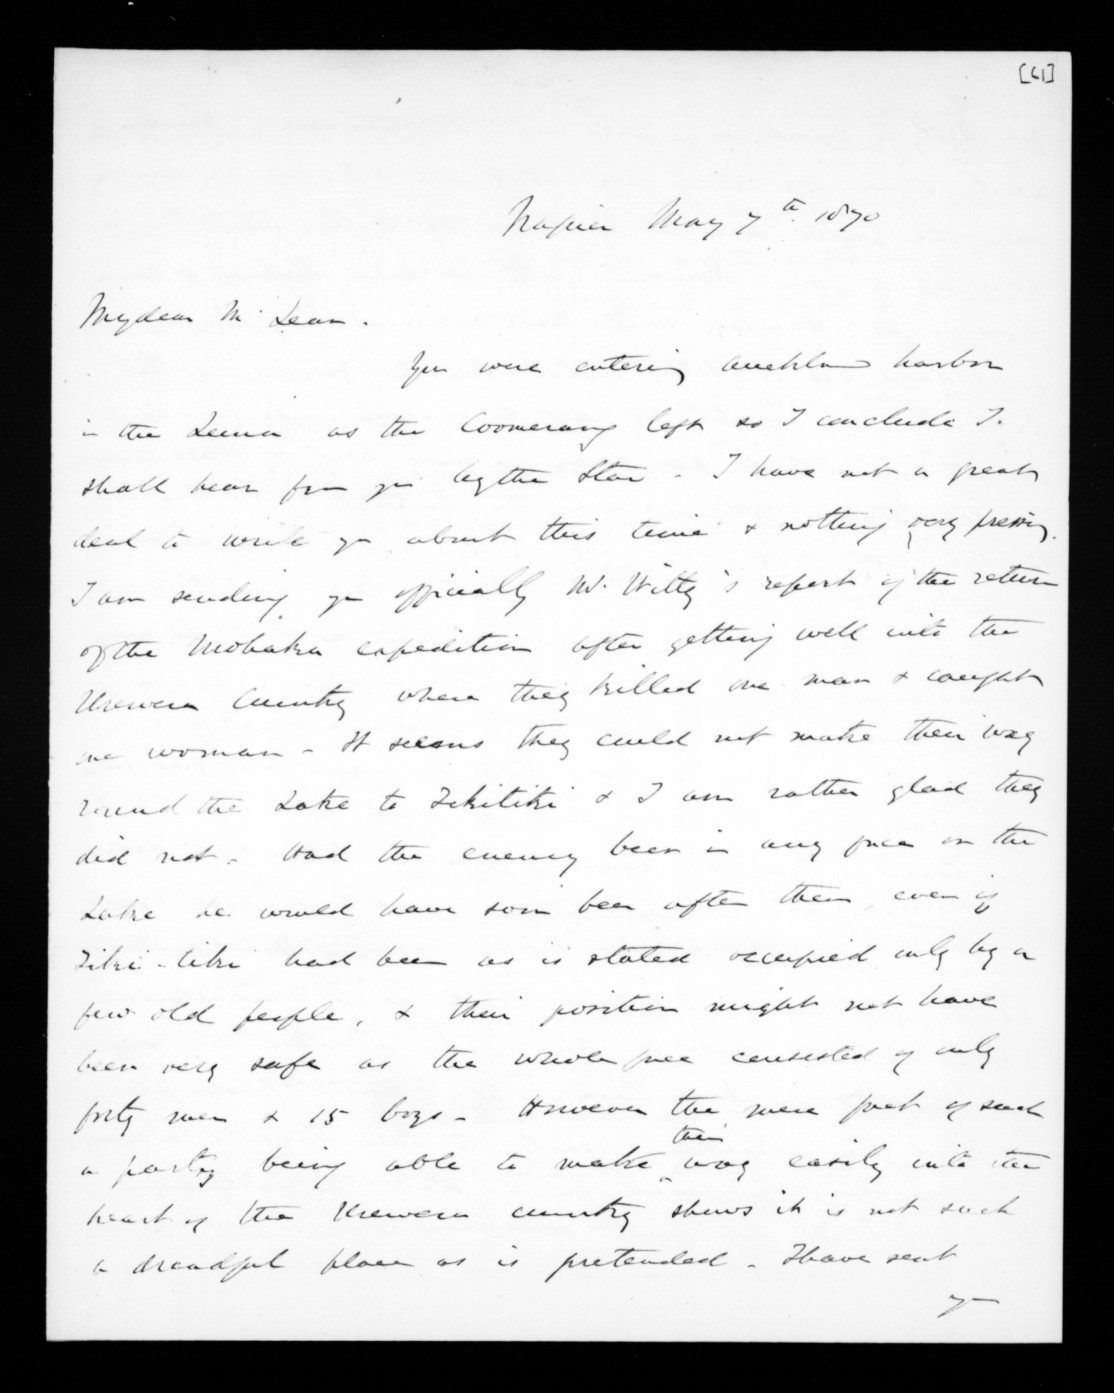 [61]
Napier May 7th 1870
My dear McLean.
You were entering Auckland harbor
in the Luna as the Boomerang left so I conclude I
shall hear from you by the Star. I have not a great
deal to write you about this time & nothing very pressing.
I am sending you officially Mr. Witty's report of the return
of the Mohaka expedition after getting well into the
Urewera Country where they killed one man & caught
one woman - It seems they could not make their way
round the Lake to Tikitiki & I am rather glad they
did not. Had the enemy been in any force on the
Lake he would have soon been after them, even if
Tiki-tiki had been as is stated occupied only by a
few old people, & their position might not have
been very safe as the whole force consisted of only
forty men & 15 boys - However the mere fact of such
a party being able to make their way easily into the
heart of the Urewera country shows it is not such
a dreadful place as is pretended. I have sent
you